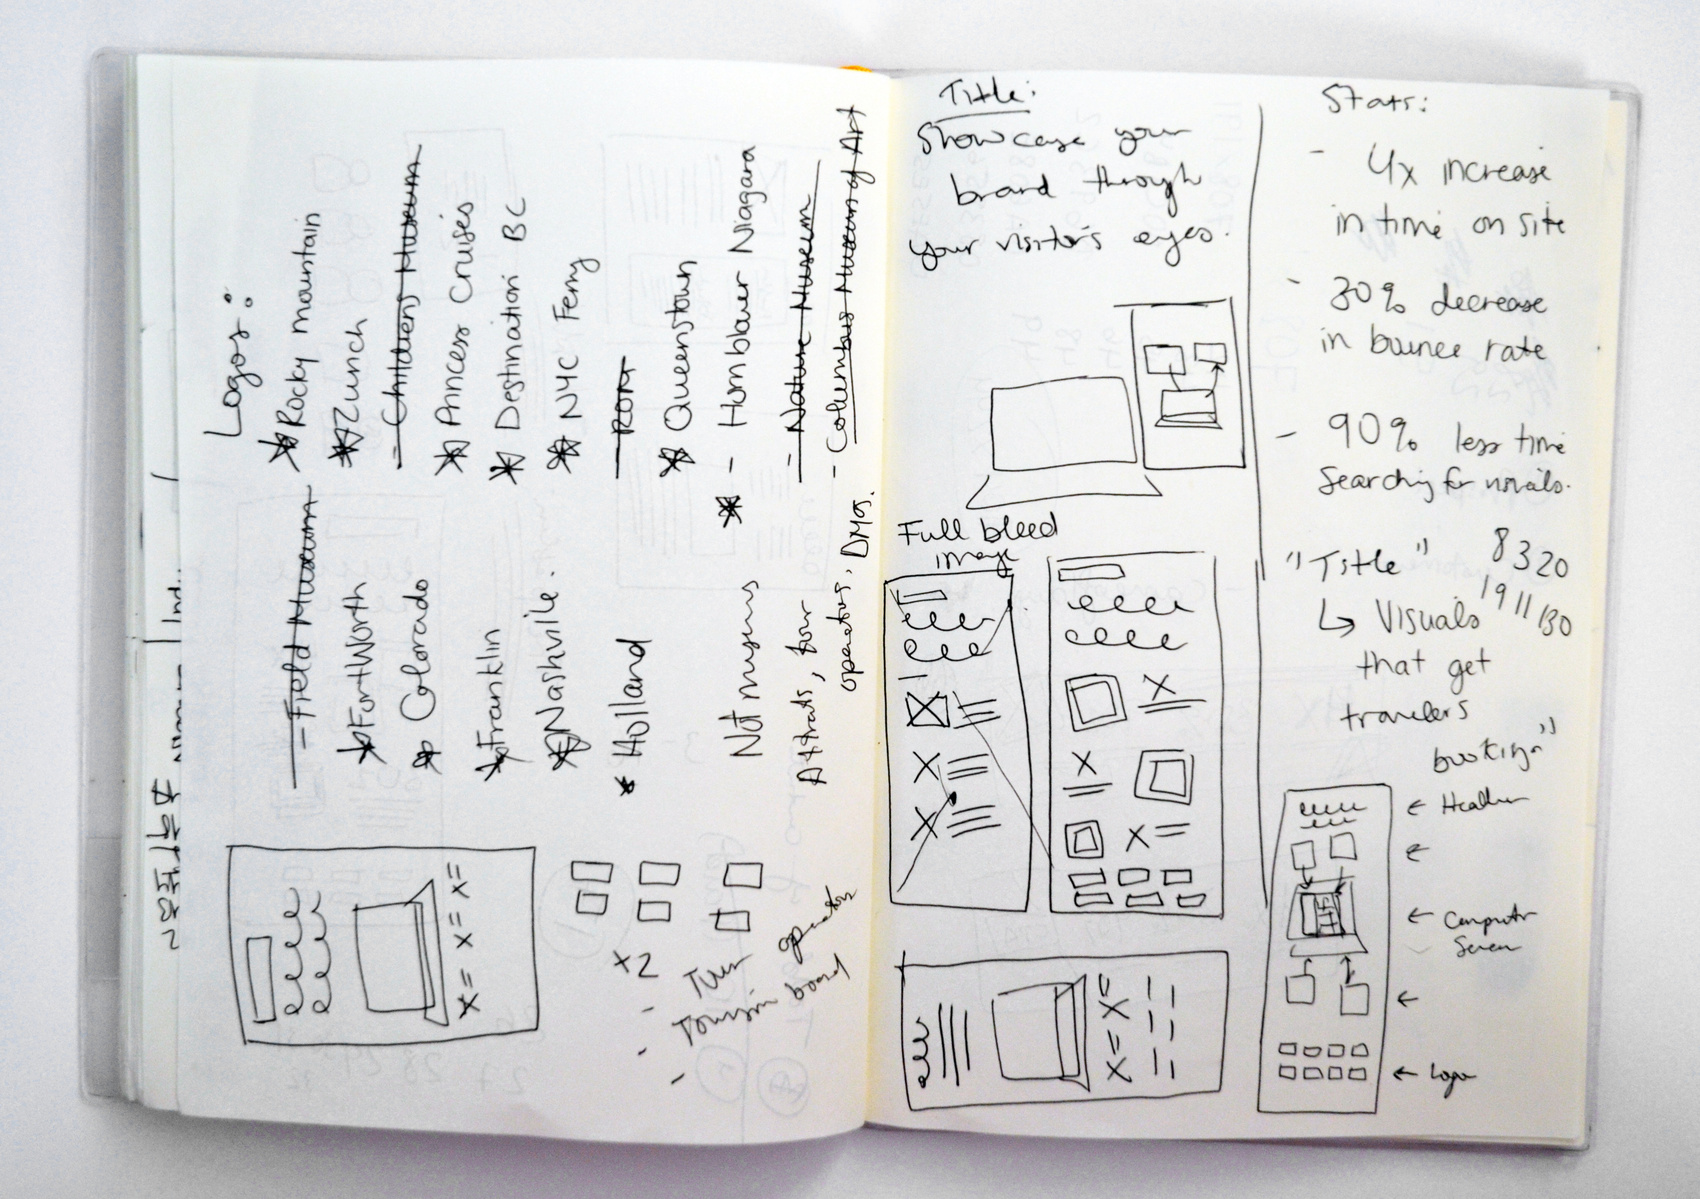 Logos:
Rocky mountain
Zunch
- Childrens Museum
Princess Cruises
Destination BC
NYC Ferry
- ROM
Queenstown
- Hornblower Niagara
- Nature Museum
- Columbus Museum of Art
- Field Museum
FortWorth
Colorado
Franklin
Nashville.
Holland
Not museums
Attrats, tour
operators, DMOs.
x2
- Tour operator
- Tourism board
-
Title:
Showcase your
brand through
your visitor's eyes.
Full bleed
image
Stats:
- 4x increase
in time on site
- 30% decrease
in bounce rate
- 90% less time
Searching for visuals.
"Title"
8320
191130
↳ Visuals
that get
travelers
booking"
← Header
←
← Computer
Screen
←
← Logo